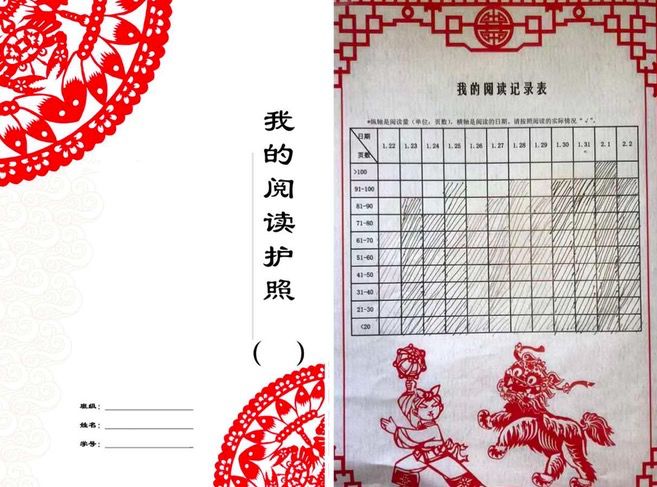 我的阅读护照
(　)
班级：
姓名：
学号：
我的阅读记录表
*纵轴是阅读量（单位：页数），横轴是阅读的日期，请按照阅读的实际情况“√”。
日期
页数
1.22 1.23 1.24 1.25 1.26 1.27 1.28 1.29 1.30 1.31 2.1 2.2
>100
91-100
81-90
71-80
61-70
51-60
41-50
31-40
21-30
<20